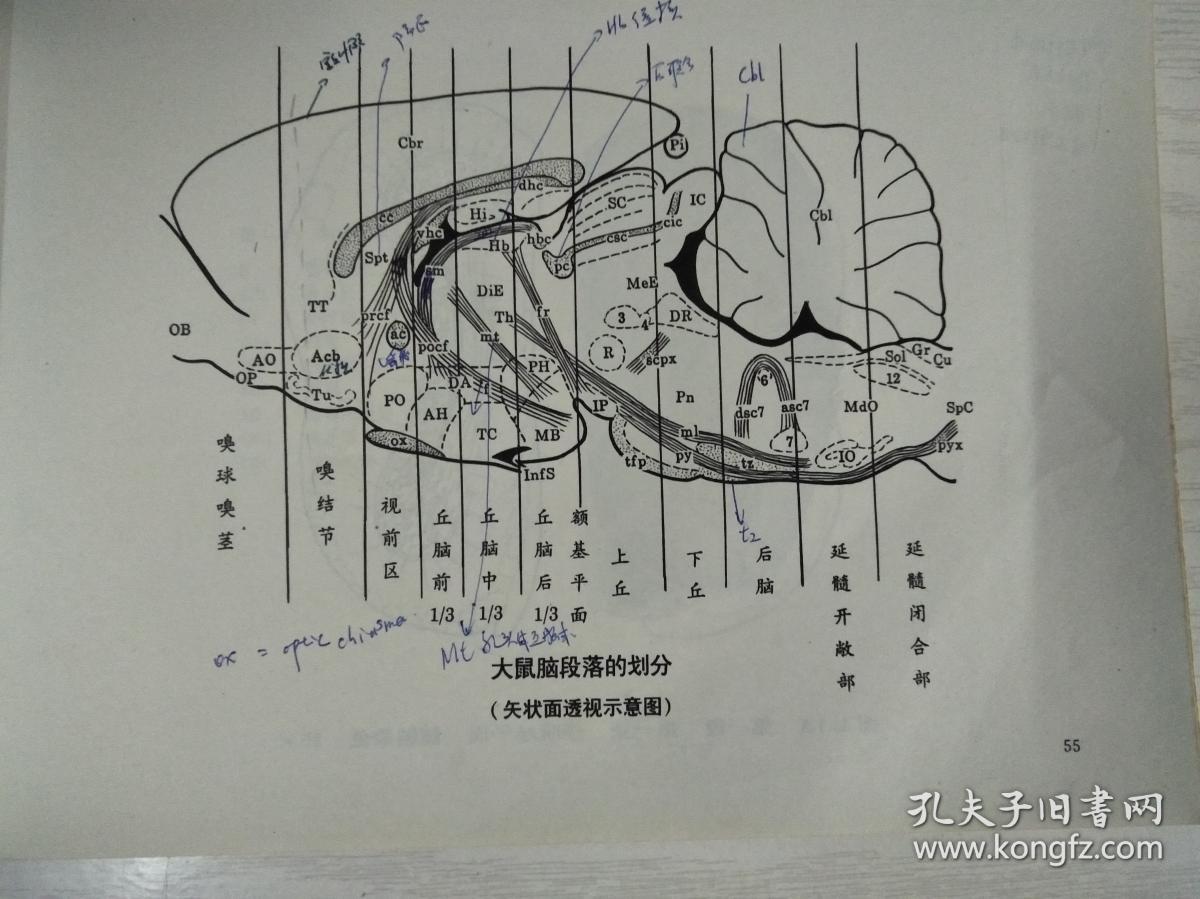 Cbl
Cbr
Pi
dhc
SC
IC
cc
Hi
cic
Cbl
vhc
Hb
hbc
csc
Spt
pc
sm
DiE
MeE
TT
prcf
Th
fr
3
4
DR
OB
ac
mt
AO
Acb
pocf
R
scpx
Sol
Gr
Cu
OP
PH
6
12
Tu
DA
f
PO
AH
IP
Pn
dsc7
asc7
MdO
SpC
ox
TC
MB
ml
7
pyx
tfp
py
tz
IO
InfS
嗅球嗅茎
嗅结节
视前区
丘脑前1/3
丘脑中1/3
丘脑后1/3
额基平面
上丘
下丘
后脑
延髓开敞部
延髓闭合部
tz
ox = optic chiasma
Mt
大鼠脑段落的划分
(矢状面透视示意图)
55
孔夫子旧书网
www.kongfz.com